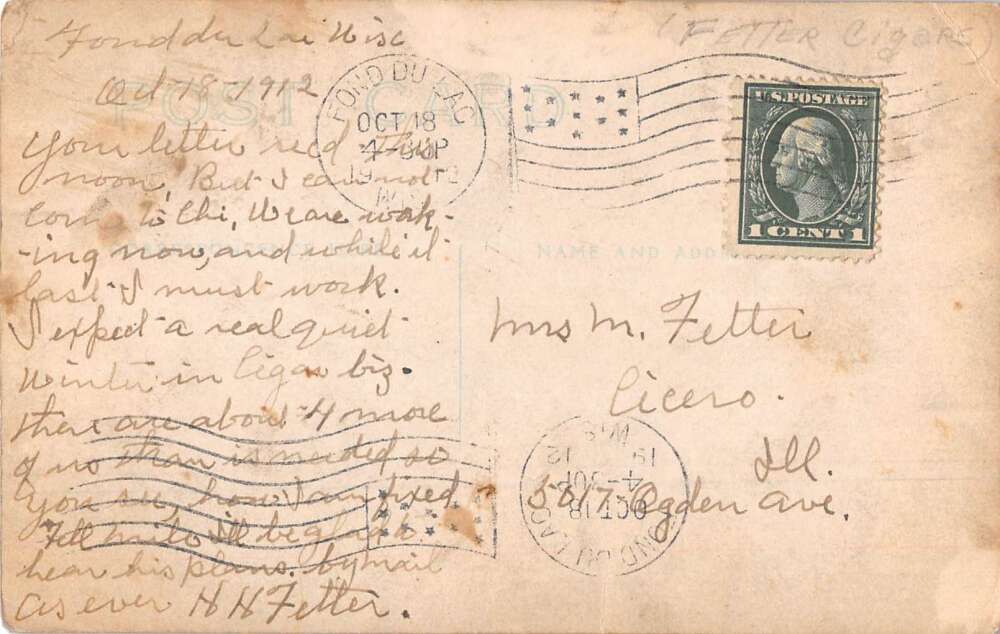 Fond du Lac Wisc
Oct 18-1912
(FETTER Cigars)
POST CARD
FOND DU LAC
OCT 18
4-30P
1912
WIS
U.S. POSTAGE
1 CENT 1
your letter recd this
noon, But I can not
Come to Chi, We are work-
-ing now, and while it
last I must work.
I expect a real quiet
Winter in Cigar biz.
there are about 4 more
of us than is needed so
you see, how I am fixed
Tell Milo I'll be glad to
hear his plans. by mail
As ever H H Fetter.
NAME AND ADDR
Mrs M. Fetter
Cicero.
Ill.
5817 Ogden Ave.
FOND DU LAC
OCT 18
4-30P
1912
WIS